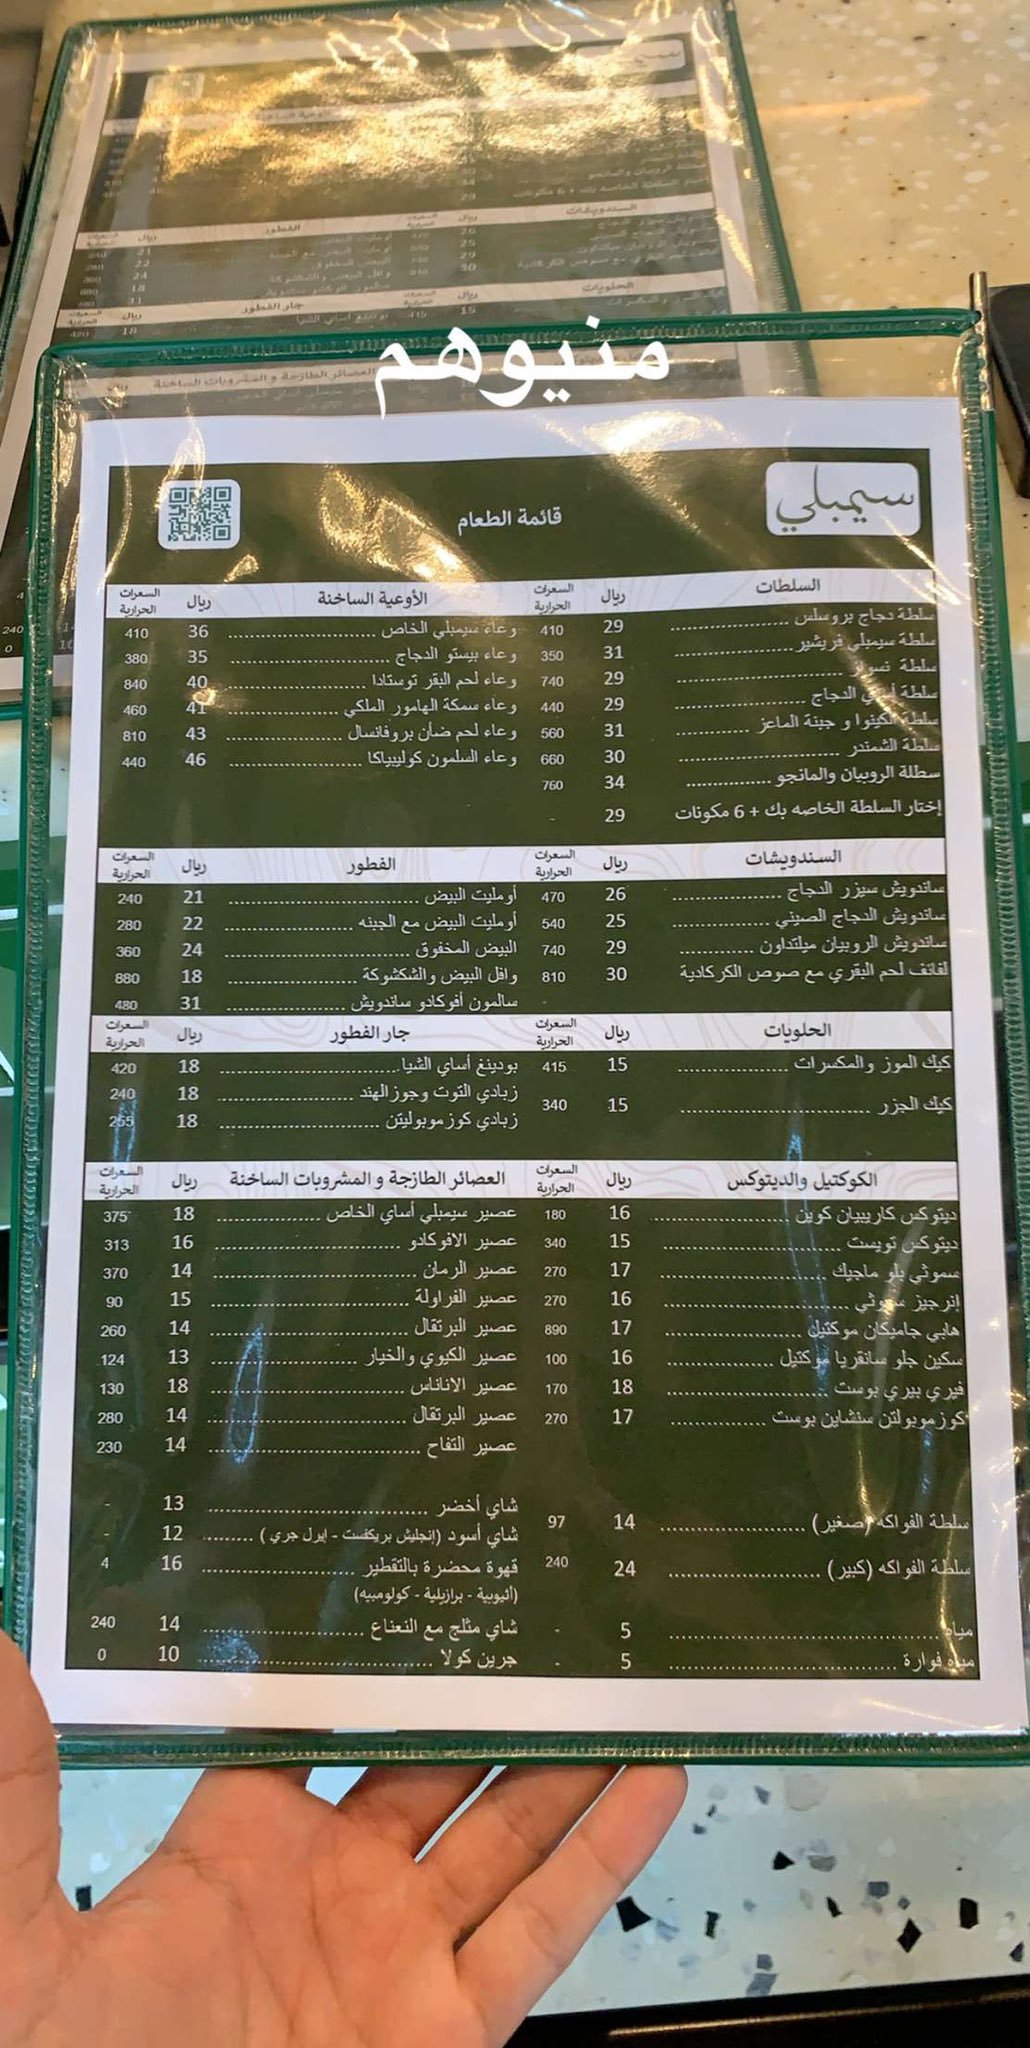 منيوهم
سيمبلي
قائمة الطعام
السلطات ريال السعرات الحرارية
سلطة دجاج بروسلس 29 410
سلطة سيمبلي فريشير 31 350
سلطة نسواز 29 740
سلطة الدجاج 29 440
سلطة الكينوا و جبنة الماعز 31 560
سلطة الشمندر 30 660
سطلة الروبيان والمانجو 34 760
إختار السلطة الخاصه بك + 6 مكونات 29 -
الأوعية الساخنة ريال السعرات الحرارية
وعاء سيمبلي الخاص 36 410
وعاء بيستو الدجاج 35 380
وعاء لحم البقر توستادا 40 840
وعاء سمكة الهامور الملكي 41 460
وعاء لحم ضأن بروفانسال 43 810
وعاء السلمون كوليبياكا 46 440
السندويشات ريال السعرات الحرارية
ساندويش سيزر الدجاج 26 470
ساندويش الدجاج الصيني 25 540
ساندويش الروبيان ميلتداون 29 740
لفائف لحم البقري مع صوص الكركادية 30 810
الفطور ريال السعرات الحرارية
أومليت البيض 21 240
أومليت البيض مع الجبنه 22 280
البيض المخفوق 24 360
وافل البيض والشكشوكة 18 880
سالمون أفوكادو ساندويش 31 480
الحلويات ريال السعرات الحرارية
كيك الموز والمكسرات 15 415
كيك الجزر 15 340
جار الفطور ريال السعرات الحرارية
بودينغ أساي الشيا 18 420
زبادي التوت وجوز الهند 18 240
زبادي كوزموبوليتن 18 255
الكوكتيل والديتوكس ريال السعرات الحرارية
ديتوكس كاريبيان كوين 16 180
ديتوكس تويست 15 340
سموثي بلو ماجيك 17 270
إنرجيز سموثي 16 270
هابي جاميكان موكتيل 17 890
سكين جلو سانقريا موكتيل 16 100
فيري بيري بوست 18 170
كوزموبولتن سنشاين بوست 17 270
سلطة الفواكه (صغير) 14 97
سلطة الفواكه (كبير) 24 240
مياه 5 -
مياه فوارة 5 -
العصائر الطازجة و المشروبات الساخنة ريال السعرات الحرارية
عصير سيمبلي أساي الخاص 18 375
عصير الافوكادو 16 313
عصير الرمان 14 370
عصير الفراولة 15 90
عصير البرتقال 14 260
عصير الكيوي والخيار 13 124
عصير الاناناس 18 130
عصير البرتقال 14 280
عصير التفاح 14 230
شاي أخضر 13 -
شاي أسود (إنجليش بريكفست - إيرل جري) 12 -
قهوة محضرة بالتقطير 16 4
(أثيوبية - برازيلية - كولومبيه)
شاي مثلج مع النعناع 14 240
جرين كولا 10 0